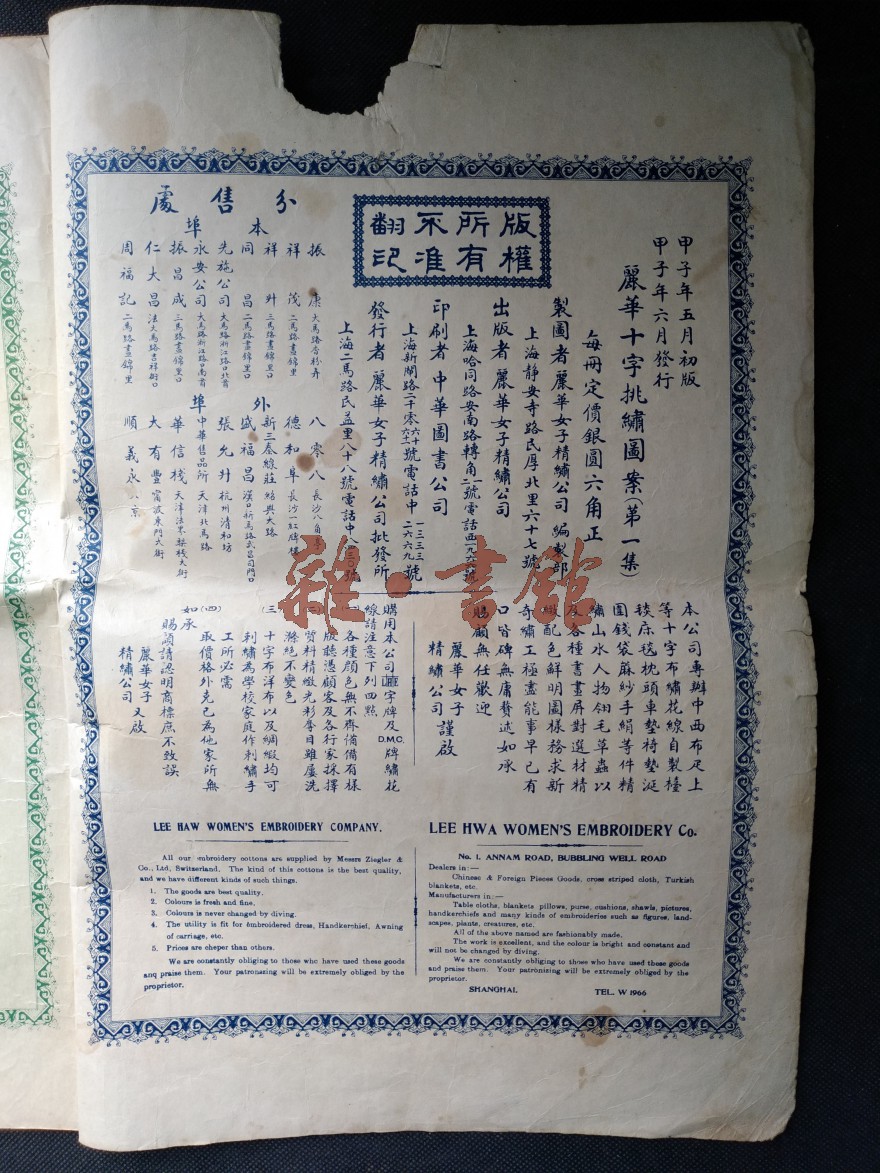 版權所有
不准翻印
甲子年五月初版
甲子年六月發行
麗華十字挑繡圖案(第一集)
每冊定價銀圓六角正
製圖者麗華女子精繡公司編製部
上海靜安寺路民厚北里六十七號
出版者麗華女子精繡公司
上海哈同路安南路轉角一號電話西一九六六號
印刷者中華圖書公司
發行者麗華女子精繡公司批發所
分售處
本埠
振康 大馬路香粉弄
祥茂 二馬路畫錦里
祥升 三馬路畫錦里口
同昌 二馬路畫錦里口
先施公司 大馬路浙江路口北首
永安公司 大馬路浙江路口南首
振昌成 三馬路畫錦里口
仁大昌 法大馬路吉祥街口
周福記 二馬路畫錦里
外埠
八零八 長沙八角亭
德和阜 長沙紅牌樓
新三泰線莊 紹興大路
盛福昌 漢口新馬路武昌司門口
張允升 杭州清和坊
中華售品所 天津北馬路
華信棧 天津法界梨棧大街
大有豐 甯波東門大街
順義永
本公司專辦中西布疋上
等十字布繡花線自製檯
毯床毯枕頭車墊椅墊涎
圍錢袋蔴紗手絹等件精
繡山水人物翎毛草蟲以
及各種書畫屏對選材精
緻配色鮮明圖樣務求新
奇繡工極盡能事早已有
口皆碑無庸贅述如承
賜顧無任歡迎
麗華女子
精繡公司 謹啟
線請注意下列四點
(一)各種顏色無不齊備備有樣
版聽憑顧客及各行家採擇
(二)質料精緻光彩奪目雖屢洗
滌絕不變色
(三)十字布洋布以及綢緞均可
刺繡為學校家庭作刺繡手
工所必需
(四)取價格外克己為他家所無
如承
賜顧請認明商標庶不致誤
麗華女子
精繡公司 又啟
LEE HAW WOMEN'S EMBROIDERY COMPANY.
All our embroidery cottons are supplied by Messrs Ziegler &
Co., Ltd, Switzerland. The kind of this cottons is the best quality,
and we have different kinds of such things.
1. The goods are best quality.
2. Colours is fresh and fine.
3. Colours is never changed by diving.
4. The utility is fit for embroidered dress, Handkerchief, Awning
of carriage, etc.
5. Prices are cheper than others.
We are constantly obliging to those who have used these goods
anq praise them. Your patronizing will be extremely obliged by the
proprietor.
LEE HWA WOMEN'S EMBROIDERY Co.
No. 1. ANNAM ROAD, BUBBLING WELL ROAD
Dealers in:—
Chinese & Foreign Pieces Goods, cross striped cloth, Turkish
blankets, etc.
Manufacturers in:—
Table cloths, blankets pillows, purse, cushions, shawls, pictures,
handkerchiefs and many kinds of embroideries such as figures, land-
scapes, plants, creatures, etc.
All of the above named are fashionably made.
The work is excellent, and the colour is bright and constant and
will not be changed by diving.
We are constantly obliging to those who have used these goods
and praise them. Your patronizing will be extremely obliged by the
proprietor.
SHANGHAI. TEL. W 1966
雜·書館